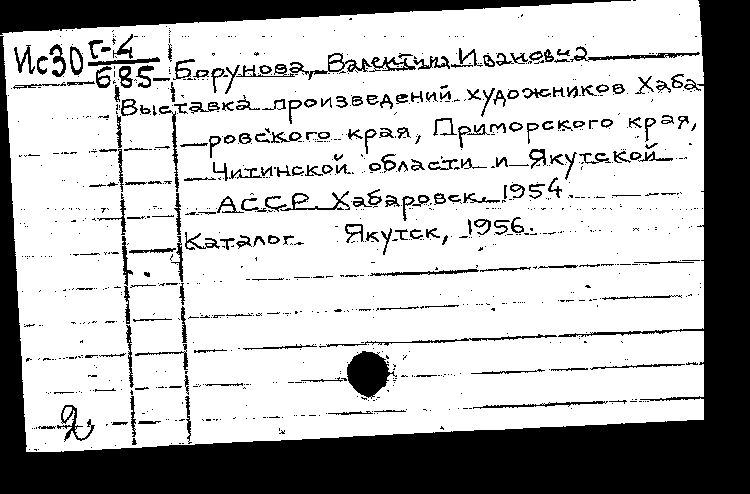 Ис30 Г-4/685 Борунова, Валентина Ивановна
Выставка произведений художников Хаба-
ровского края, Приморского края,
Читинской области и Якутской
АССР. Хабаровск. 1954.
Каталог. Якутск, 1956.
2